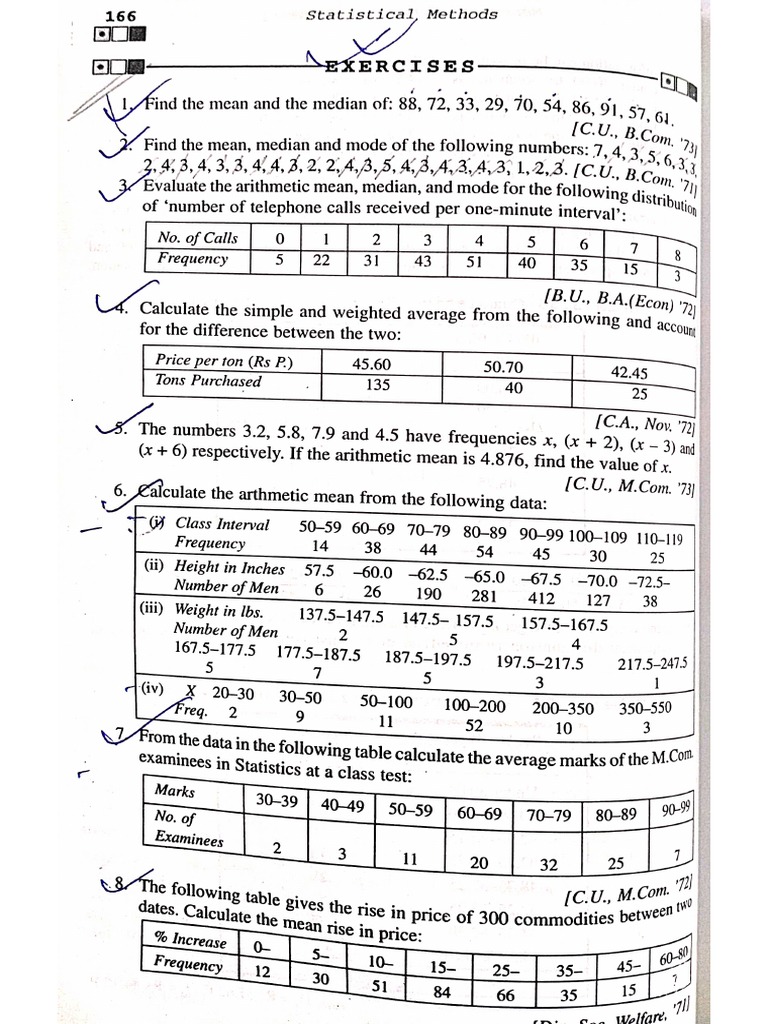 166
Statistical Methods
EXERCISES
1. Find the mean and the median of: 88, 72, 33, 29, 70, 54, 86, 91, 57, 61.
[C.U., B.Com. '73]
2. Find the mean, median and mode of the following numbers: 7, 4, 3, 5, 6, 3, 3,
2, 4, 3, 4, 3, 3, 4, 4, 3, 2, 2, 4, 3, 5, 4, 3, 4, 3, 4, 3, 1, 2, 3. [C.U., B.Com. '71]
3. Evaluate the arithmetic mean, median, and mode for the following distribution
of 'number of telephone calls received per one-minute interval':
No. of Calls 0 1 2 3 4 5 6 7 8
Frequency 5 22 31 43 51 40 35 15 3
[B.U., B.A.(Econ) '72]
4. Calculate the simple and weighted average from the following and account
for the difference between the two:
Price per ton (Rs P.) 45.60 50.70 42.45
Tons Purchased 135 40 25
[C.A., Nov. '72]
5. The numbers 3.2, 5.8, 7.9 and 4.5 have frequencies x, (x + 2), (x – 3) and
(x + 6) respectively. If the arithmetic mean is 4.876, find the value of x.
[C.U., M.Com. '73]
6. Calculate the arthmetic mean from the following data:
(i) Class Interval 50–59 60–69 70–79 80–89 90–99 100–109 110–119
Frequency 14 38 44 54 45 30 25
(ii) Height in Inches 57.5 –60.0 –62.5 –65.0 –67.5 –70.0 –72.5–
Number of Men 6 26 190 281 412 127 38
(iii) Weight in lbs. 137.5–147.5 147.5– 157.5 157.5–167.5
Number of Men 2 5 4
167.5–177.5 177.5–187.5 187.5–197.5 197.5–217.5 217.5–247.5
5 7 5 3 1
(iv) X 20–30 30–50 50–100 100–200 200–350 350–550
Freq. 2 9 11 52 10 3
7. From the data in the following table calculate the average marks of the M.Com.
examinees in Statistics at a class test:
Marks 30–39 40–49 50–59 60–69 70–79 80–89 90–99
No. of
Examinees 2 3 11 20 32 25 7
[C.U., M.Com. '72]
8. The following table gives the rise in price of 300 commodities between two
dates. Calculate the mean rise in price:
% Increase 0– 5– 10– 15– 25– 35– 45– 60–80
Frequency 12 30 51 84 66 35 15 7
Welfare, '71]